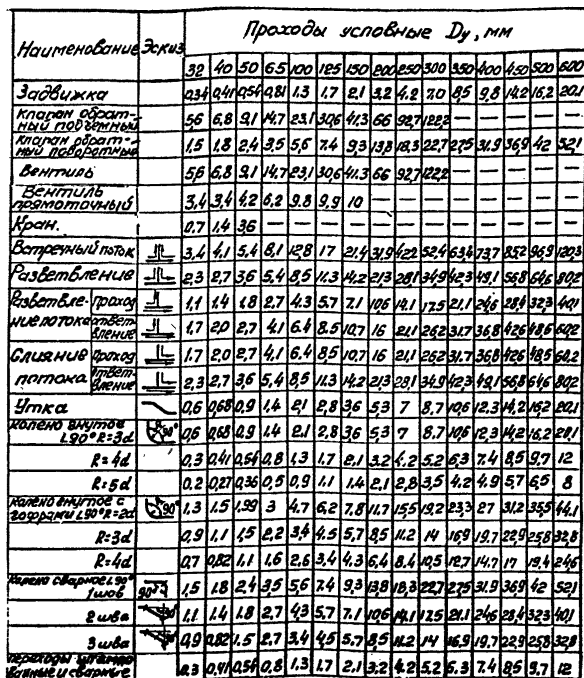 Наименование Эскиз Проходы условные Dy, мм
32 40 50 65 100 125 150 200 250 300 350 400 450 500 600
Задвижка 0,34 0,41 0,54 0,81 1.3 1.7 2.1 3.2 4.2 7.0 8,5 9,8 14.2 16,2 20.1
Клапан обрат-
ный подъемный 5,6 6.8 9,1 14.7 23.1 30,6 41.3 66 92,7 122,2 — — — — —
Клапан обрат-
ный поворотный 1.5 1.8 2.4 3.5 5,6 7.4 9.3 13,8 18,3 22,7 27,5 31.9 36,9 42 52,1
Вентиль 5,6 6.8 9,1 14.7 23,1 30,6 41.3 66 92,7 122,2 — — — — —
Вентиль
прямоточный 3,4 3,4 4.2 6,2 9.8 9,9 10 — — — — — — — —
Кран. 0.7 1.4 3.6 — — — — — — — — — — — —
Встречный поток 3,4 4.1 5,4 8,1 12,8 17 21,4 31,9 42,2 52,4 63,4 73,7 85,2 96,9 120,3
Разветвление 2,3 2,7 3,6 5,4 8,5 11.3 14,2 21,3 28,1 34,9 42,3 49,1 56,8 64,6 80,2
Разветвле-
ние потока проход 1,1 1.4 1.8 2.7 4.3 5.7 7.1 10,6 14.1 17,5 21.1 24,6 28,4 32,3 40,1
ответ-
вление 1.7 2,0 2,7 4,1 6.4 8,5 10,7 16 21,1 26,2 31,7 36,8 42,6 48,6 60,2
Слияние
потока проход 1.7 2.0 2.7 4.1 6,4 8,5 10,7 16 21,1 26,2 31.7 36,8 42,6 48,5 60,2
ответ-
вление 2,3 2.7 3,6 5,4 8,5 11.3 14,2 21,3 28,1 34,9 42,3 49,1 56,8 64,6 80,2
Утка 0,6 0,68 0,9 1.4 2,1 2,8 3,6 5,3 7 8.7 10,6 12.3 14,2 16,2 20,1
Колено гнутое
L90° R=3d 90° 0,6 0,68 0,9 1.4 2.1 2.8 3,6 5,3 7 8.7 10,6 12,3 14,2 16,2 20,1
R=4d 0,3 0,41 0,54 0,8 1.3 1.7 2.1 3,2 4.2 5.2 6,3 7.4 8,5 9,7 12
R=5d 0,2 0,27 0,36 0,5 0,9 1.1 1.4 2,1 2,8 3,5 4.2 4,9 5,7 6,5 8
Колено гнутое с
гофрами L90° R=2d 90° 1.3 1.5 1.99 3 4.7 6,2 7,8 11.7 15,5 19,2 23,3 27 31.2 35,5 44.1
R=3d 0,9 1.1 1,5 2,2 3,4 4.5 5.7 8,5 11,2 14 16,9 19.7 22,9 25,8 32,8
R=4d 0,7 0,82 1.1 1.6 2.6 3,4 4.3 6,4 8.4 10,5 12,7 14.7 17 19,4 24,6
Колено сварное L90°
1 шов 90° 1,5 1.8 2.4 3,5 5,6 7.4 9,3 13,8 18,3 22,7 27,5 31.9 36,9 42 52,1
2 шва 1.1 1.4 1.8 2.7 4,3 5,7 7.1 10,6 14,1 17,5 21.1 24,6 28,4 32,3 40,1
3 шва 0,9 0,82 1.5 2.7 3,4 4,5 5.7 8,5 11.2 14 16,9 19.7 22,9 25,8 32,8
Переходы штампо-
ванные и сварные 0.3 0,41 0,54 0.8 1.3 1.7 2.1 3.2 4.2 5.2 6.3 7.4 8,5 9,7 12